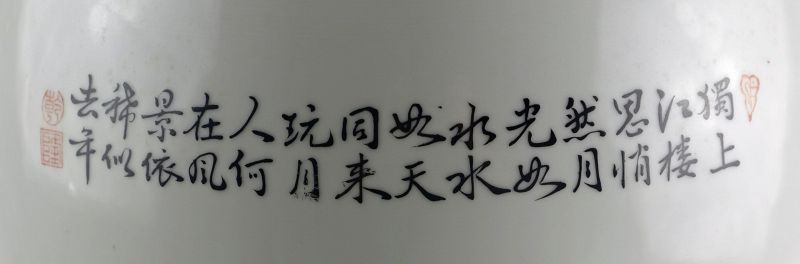 獨上
江楼
思悄
然月
光如
水水
如天
同来
玩月
人何
在风
景依
稀似
去年